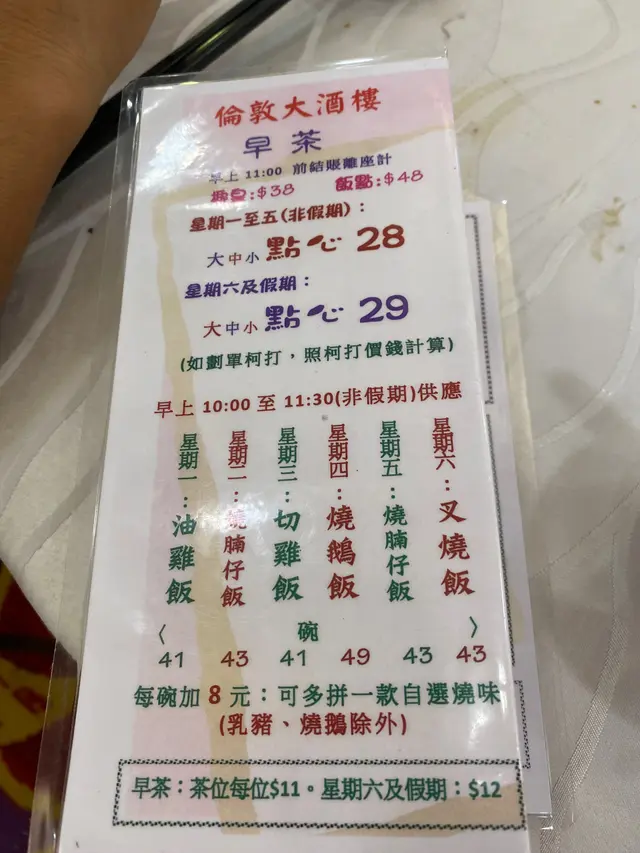 倫敦大酒樓
早茶
早上 11:00 前結賬離座計
腸皇:$38 飯點:$48
星期一至五(非假期):
大中小點心 28
星期六及假期:
大中小點心 29
(如劃單柯打,照柯打價錢計算)
早上 10:00 至 11:30(非假期)供應
星期一:油雞飯
星期二:燒腩仔飯
星期三:切雞飯
星期四:燒鵝飯
星期五:燒腩仔飯
星期六:叉燒飯
〈 碗 〉
41 43 41 49 43 43
每碗加 8 元:可多拼一款自選燒味
(乳豬、燒鵝除外)
早茶:茶位每位$11。星期六及假期:$12